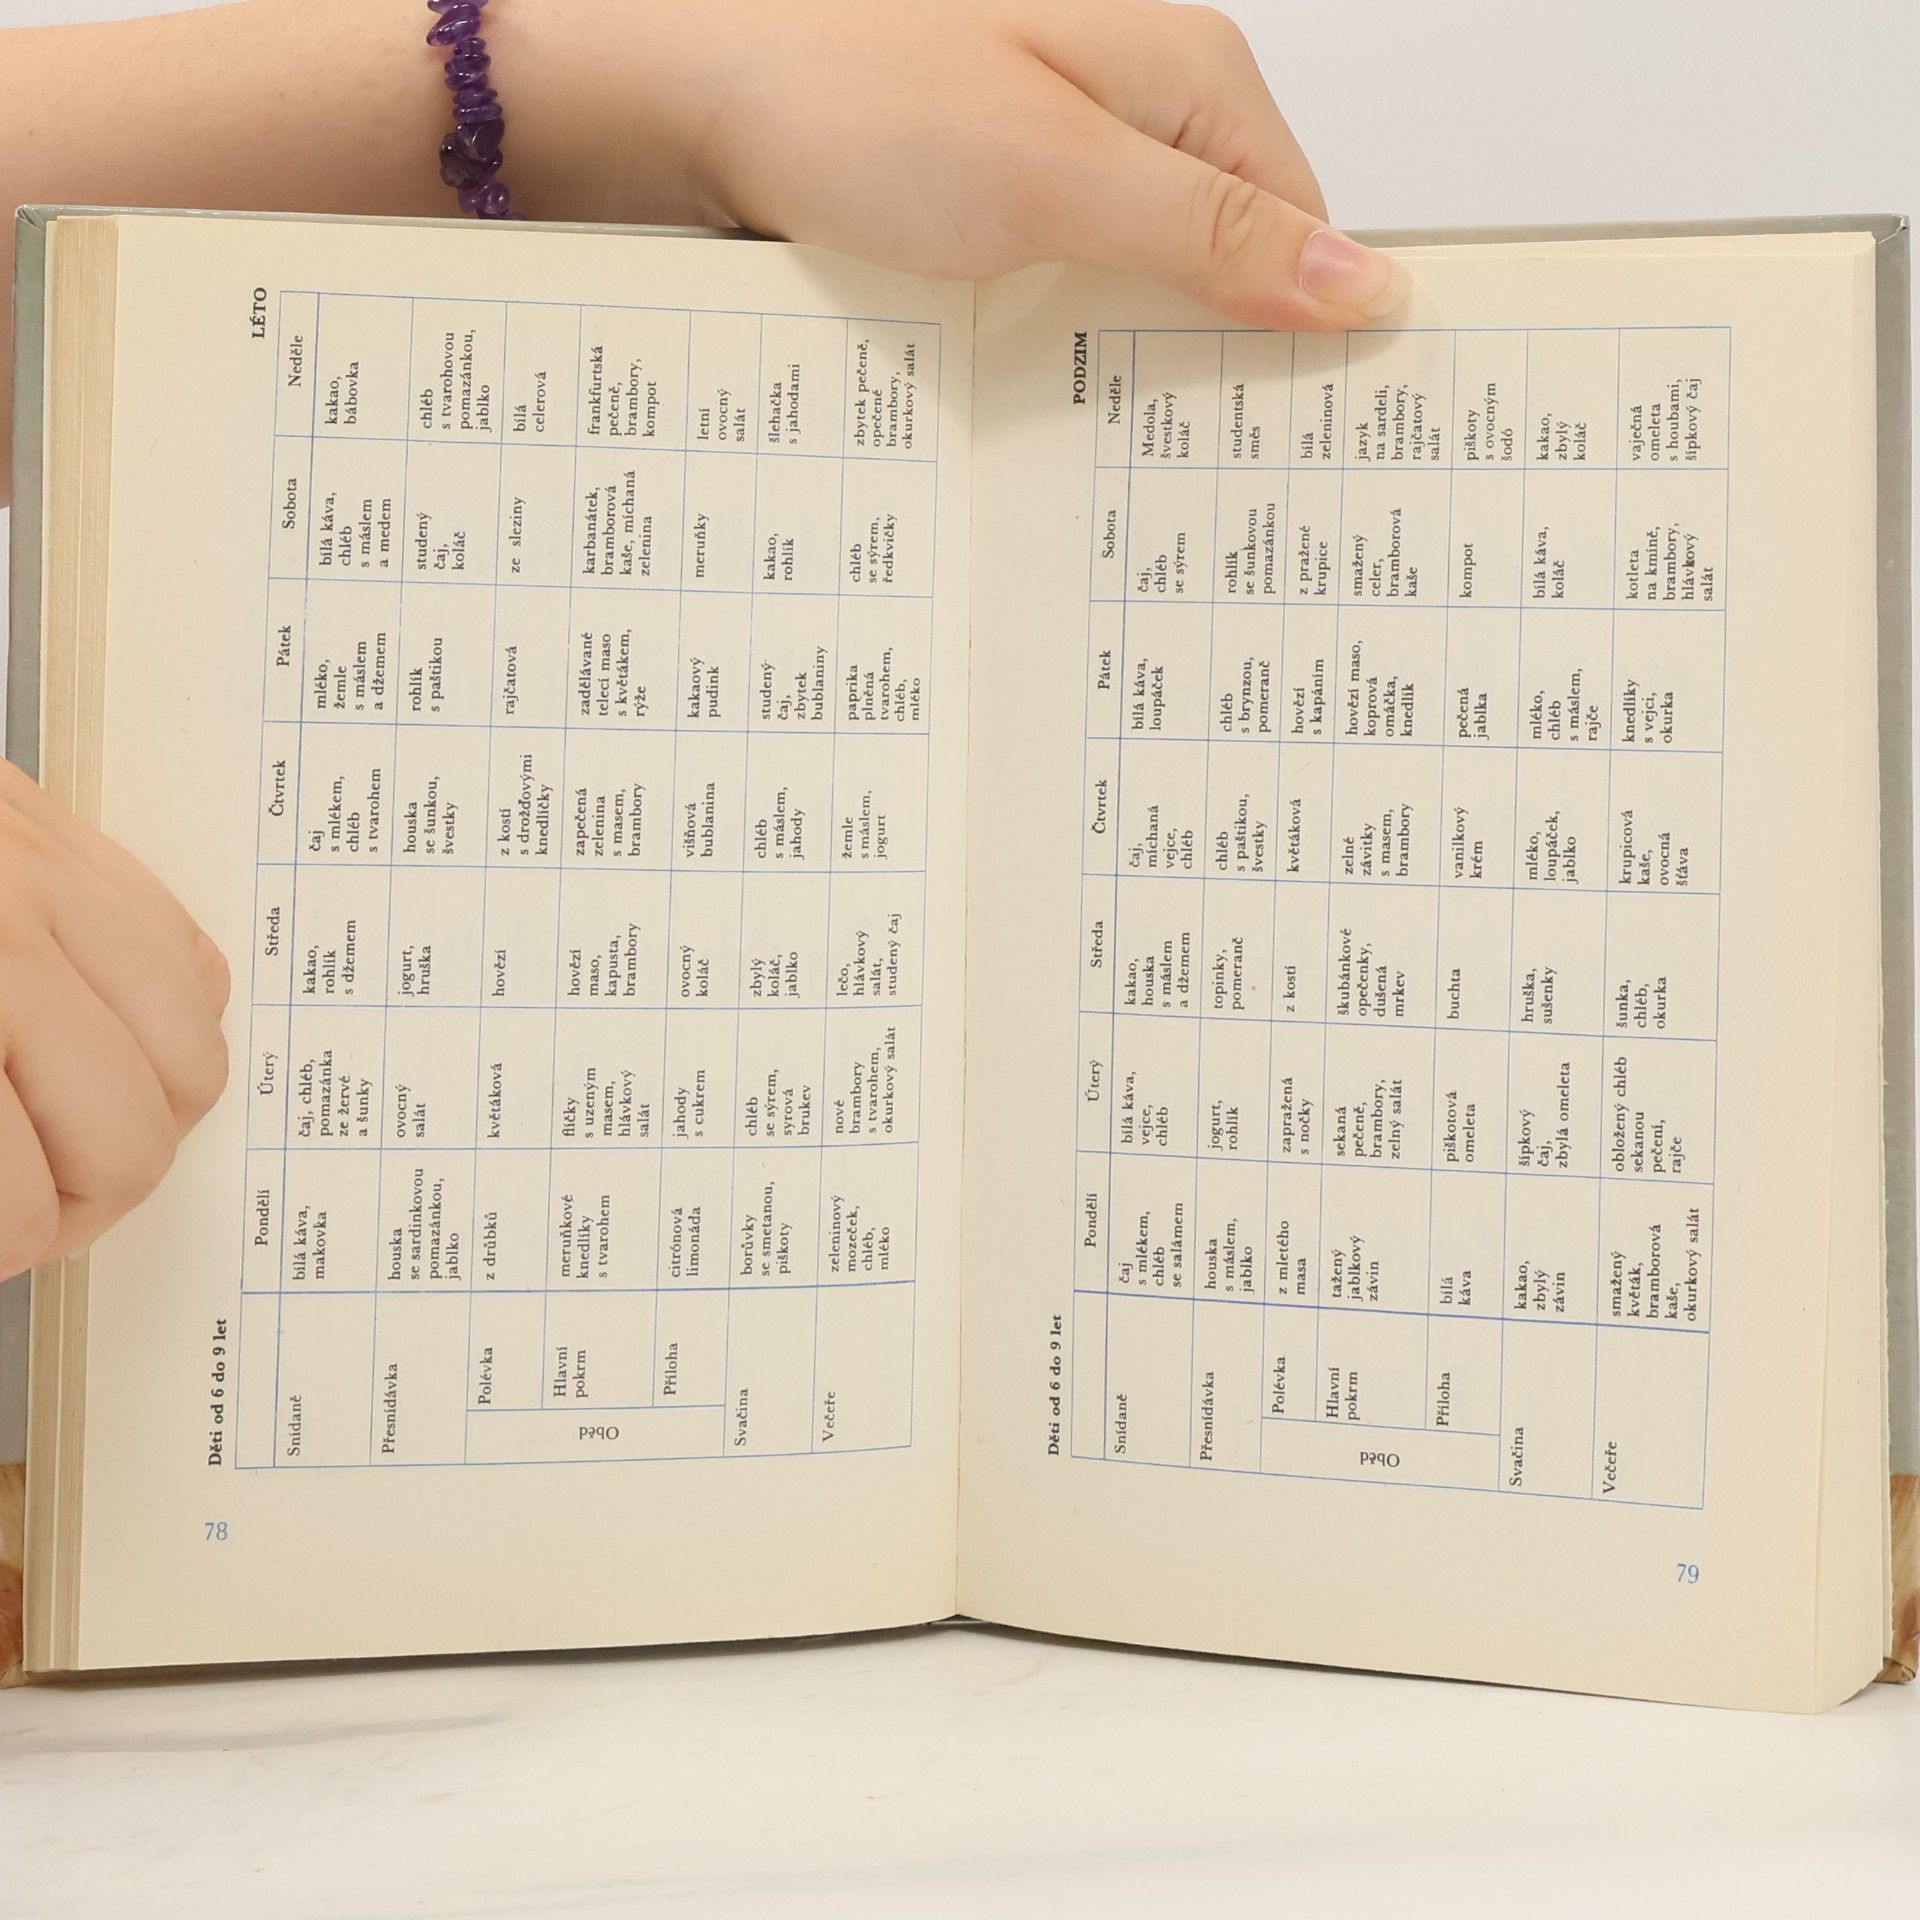 Děti od 6 do 9 let
LÉTO
Pondělí
Úterý
Středa
Čtvrtek
Pátek
Sobota
Neděle
Snídaně
bílá káva,
makovka
čaj, chléb,
pomazánka
ze žervé
a šunky
kakao,
rohlík
s džemem
čaj
s mlékem,
chléb
s tvarohem
mléko,
žemle
s máslem
a džemem
bílá káva,
chléb
s máslem
a medem
kakao,
bábovka
Přesnídávka
houska
se sardinkovou
pomazánkou,
jablko
ovocný
salát
jogurt,
hruška
houska
se šunkou,
švestky
rohlík
s paštikou
studený
čaj,
koláč
chléb
s tvarohovou
pomazánkou,
jablko
Oběd
Polévka
z drůbků
květáková
hovězí
z kostí
s drožďovými
knedlíčky
rajčatová
ze sleziny
bílá
celerová
Hlavní
pokrm
meruňkové
knedlíky
s tvarohem
flíčky
s uzeným
masem,
hlávkový
salát
hovězí
maso,
kapusta,
brambory
zapečená
zelenina
s masem,
brambory
zadělávané
telecí maso
s květákem,
rýže
karbanátek,
bramborová
kaše, míchaná
zelenina
frankfurtská
pečeně,
brambory,
kompot
Příloha
citrónová
limonáda
jahody
s cukrem
ovocný
koláč
višňová
bublanina
kakaový
pudink
meruňky
letní
ovocný
salát
Svačina
borůvky
se smetanou,
piškoty
chléb
se sýrem,
syrová
brukev
zbylý
koláč,
jablko
chléb
s máslem,
jahody
studený
čaj,
zbytek
bublaniny
kakao,
rohlík
šlehačka
s jahodami
Večeře
zeleninový
mozeček,
chléb,
mléko
nové
brambory
s tvarohem,
okurkový salát
lečo,
hlávkový
salát,
studený čaj
žemle
s máslem,
jogurt
paprika
plněná
tvarohem,
chléb,
mléko
chléb
se sýrem,
ředkvičky
zbytek pečeně,
opečené
brambory,
okurkový salát
78
Děti od 6 do 9 let
PODZIM
Pondělí
Úterý
Středa
Čtvrtek
Pátek
Sobota
Neděle
Snídaně
čaj
s mlékem,
chléb
se salámem
bílá káva,
vejce,
chléb
kakao,
houska
s máslem
a džemem
čaj,
míchaná
vejce,
chléb
bílá káva,
loupáček
čaj,
chléb
se sýrem
Medola,
švestkový
koláč
Přesnídávka
houska
s máslem,
jablko
jogurt,
rohlík
topinky,
pomeranč
chléb
s paštikou,
švestky
chléb
s brynzou,
pomeranč
rohlík
se šunkovou
pomazánkou
studentská
směs
Oběd
Polévka
z mletého
masa
zapražená
s nočky
z kostí
květáková
hovězí
s kapáním
z pražené
krupice
bílá
zeleninová
Hlavní
pokrm
tažený
jablkový
závin
sekaná
pečeně,
brambory,
zelný salát
škubánkové
opečenky,
dušená
mrkev
zelné
závitky
s masem,
brambory
hovězí maso,
koprová
omáčka,
knedlík
smažený
celer,
bramborová
kaše
jazyk
na sardeli,
brambory,
rajčatový
salát
Příloha
bílá
káva
piškotová
omeleta
buchta
vanilkový
krém
pečená
jablka
kompot
piškoty
s ovocným
šodó
Svačina
kakao,
zbylý
závin
šípkový
čaj,
zbylá omeleta
hruška,
sušenky
mléko,
loupáček,
jablko
mléko,
chléb
s máslem,
rajče
bílá káva,
koláč
kakao,
zbylý
koláč
Večeře
smažený
květák,
bramborová
kaše,
okurkový salát
obložený chléb
sekanou
pečení,
rajče
šunka,
chléb,
okurka
krupicová
kaše,
ovocná
šťáva
knedlíky
s vejci,
okurka
kotleta
na kmíně,
brambory,
hlávkový
salát
vaječná
omeleta
s houbami,
šípkový čaj
79